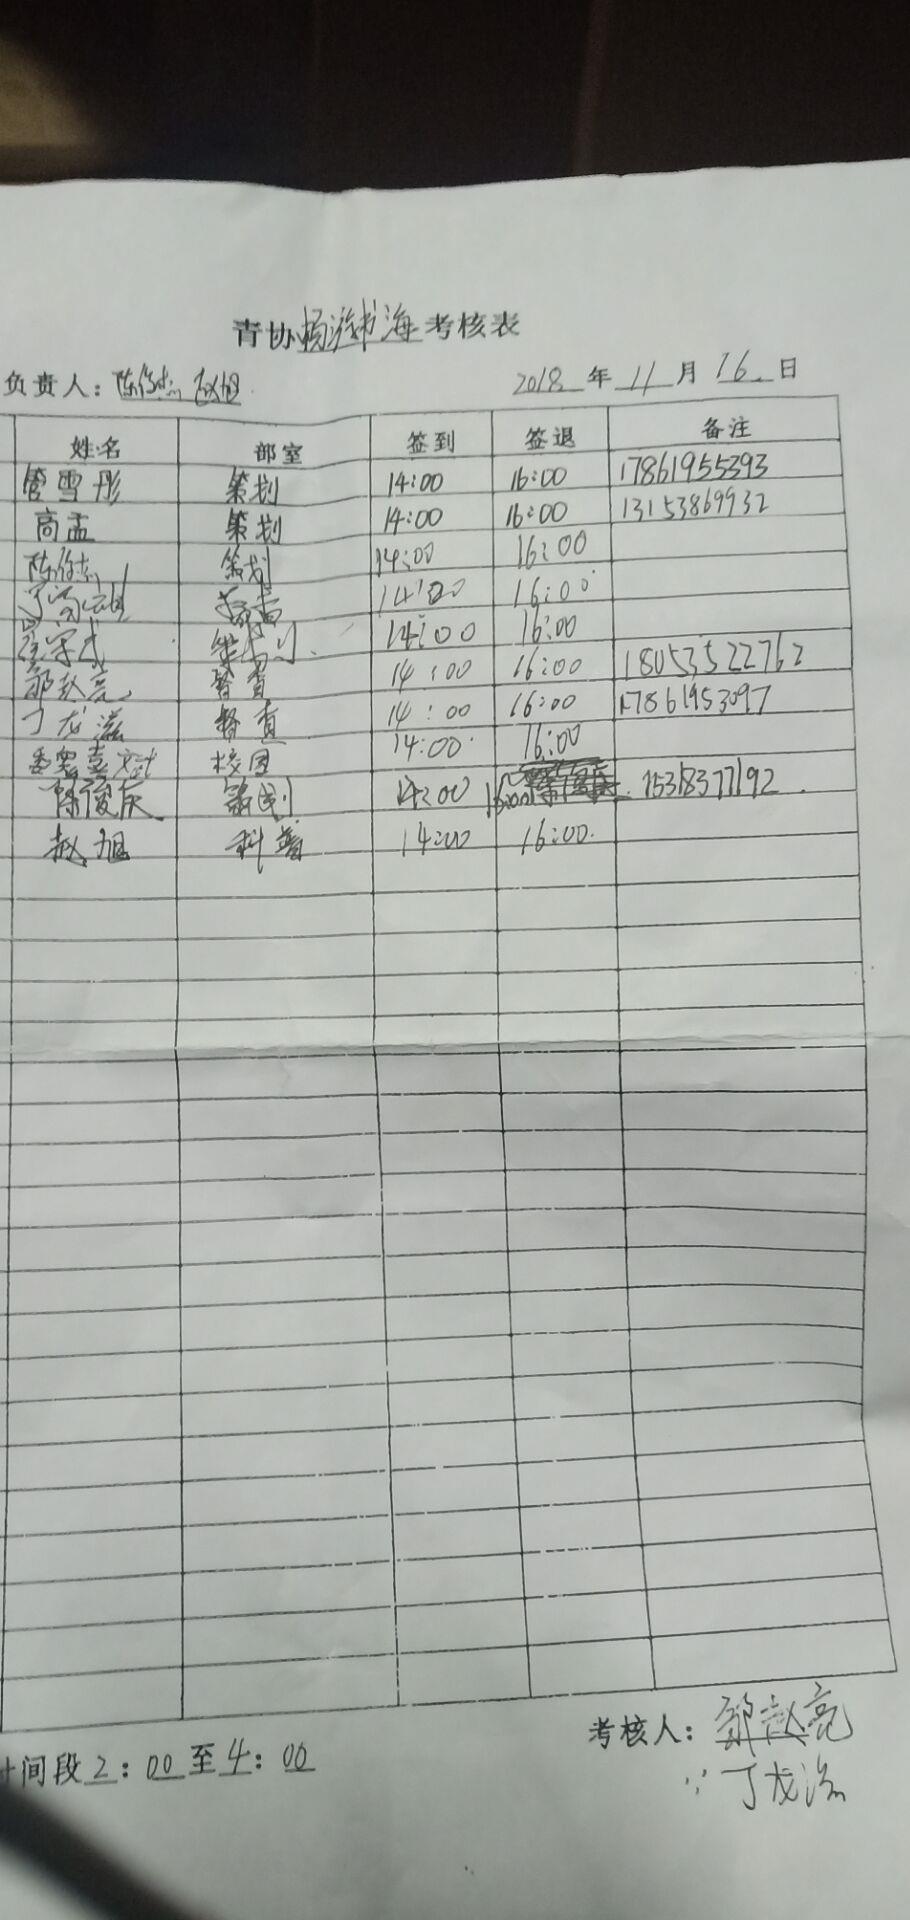 青协畅游书海考核表
负责人：陈俊杰 赵旭 2018年11月16日
姓名 部室 签到 签退 备注
管雪彤 策划 14:00 16:00 17861955393
高孟 策划 14:00 16:00 13153869932
陈俊杰 策划 14:00 16:00
14:00 16:00
14:00 16:00
邹赵亮 督查 14:00 16:00 18053522762
丁龙滋 督查 14:00 16:00 17861953097
校团 14:00 16:00
陈俊庆 策划 14:00 16:00 15318377192
赵旭 科普 14:00 16:00
考核人：邹赵亮
丁龙滋
时间段2：00至4：00